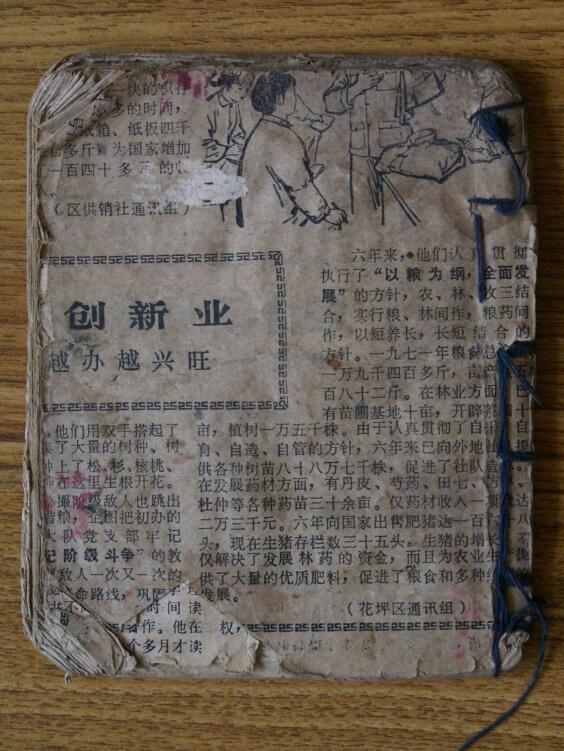 块的
多的时间，
纸箱、纸板四千
多斤，为国家增加
一百四十多元的
（区供销社通讯组）
创新业
越办越兴旺
他们用双手搭起了
了大量的树种、树
上了松、杉、核桃、
在这里生根开花。
撮阶级敌人也跳出
粮，企图把初办的
大队党支部牢记
记阶级斗争”的教
敌人一次又一次的
命路线，巩固
时间读
作。他在
个多月才读
六年来，他们认真贯彻
执行了“以粮为纲，全面发
展”的方针，农、林、牧三结
合，实行粮、林间作，粮药间
作，以短养长，长短结合的
方针。一九七一年粮食总
一万九千四百多斤，亩产
百八十二斤。在林业方面，
有苗圃基地十亩，开辟
亩，植树一万五千株。由于认真贯彻了自采、自
育、自造、自管的方针，六年来已向外地
供各种树苗八十八万七千株，促进了社队造
在发展药材方面，有丹皮、芍药、田七、
杜仲等各种药苗三十余亩。仅药材收入一项
二万三千元。六年向国家出售肥猪达一百六十八
头，现在生猪存栏数三十五头。生猪的增长，不
仅解决了发展林药的资金，而且为农业生产提
供了大量的优质肥料，促进了粮食和多种
发展。
（花坪区通讯组）
权，